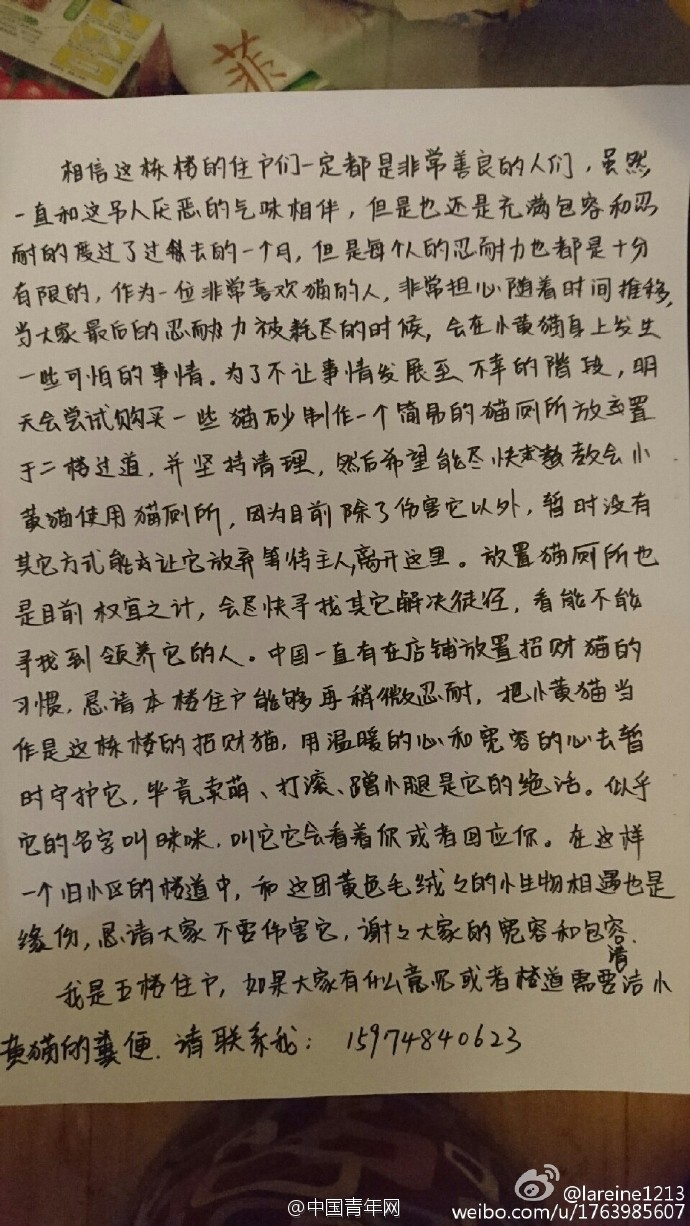 菲
相信这栋楼的住户们一定都是非常善良的人们，虽然
一直和这吊人厌恶的气味相伴，但是也还是充满包容和忍
耐的度过了过去的一个月，但是每个人的忍耐力也都是十分
有限的，作为一位非常喜欢猫的人，非常担心随着时间推移，
当大家最后的忍耐力被耗尽的时候，会在小黄猫身上发生
一些可怕的事情。为了不让事情发展至不幸的阶段，明
天会尝试购买一些猫砂制作一个简易的猫厕所放置
于二楼过道，并坚持清理，然后希望能尽快教会小
黄猫使用猫厕所，因为目前除了伤害它以外，暂时没有
其它方式能够让它放弃等待主人，离开这里。放置猫厕所也
是目前权宜之计，会尽快寻找其它解决途径，看能不能
寻找到领养它的人。中国一直有在店铺放置招财猫的
习惯，恳请本楼住户能够再稍微忍耐，把小黄猫当
作是这栋楼的招财猫，用温暖的心和宽容的心去暂
时守护它，毕竟卖萌、打滚、蹭小腿是它的绝活。似乎
它的名字叫咪咪，叫它它会看着你或者回应你。在这样
一个旧小区的楼道中，和这团黄色毛绒々的小生物相遇也是
缘份，恳请大家不要伤害它，谢々大家的宽容和包容.
我是五楼住户，如果大家有什么意见或者楼道需要清洁小
黄猫的粪便．请联系我：15974840623
@lareine1213
@中国青年网
weibo.com/u/1763985607